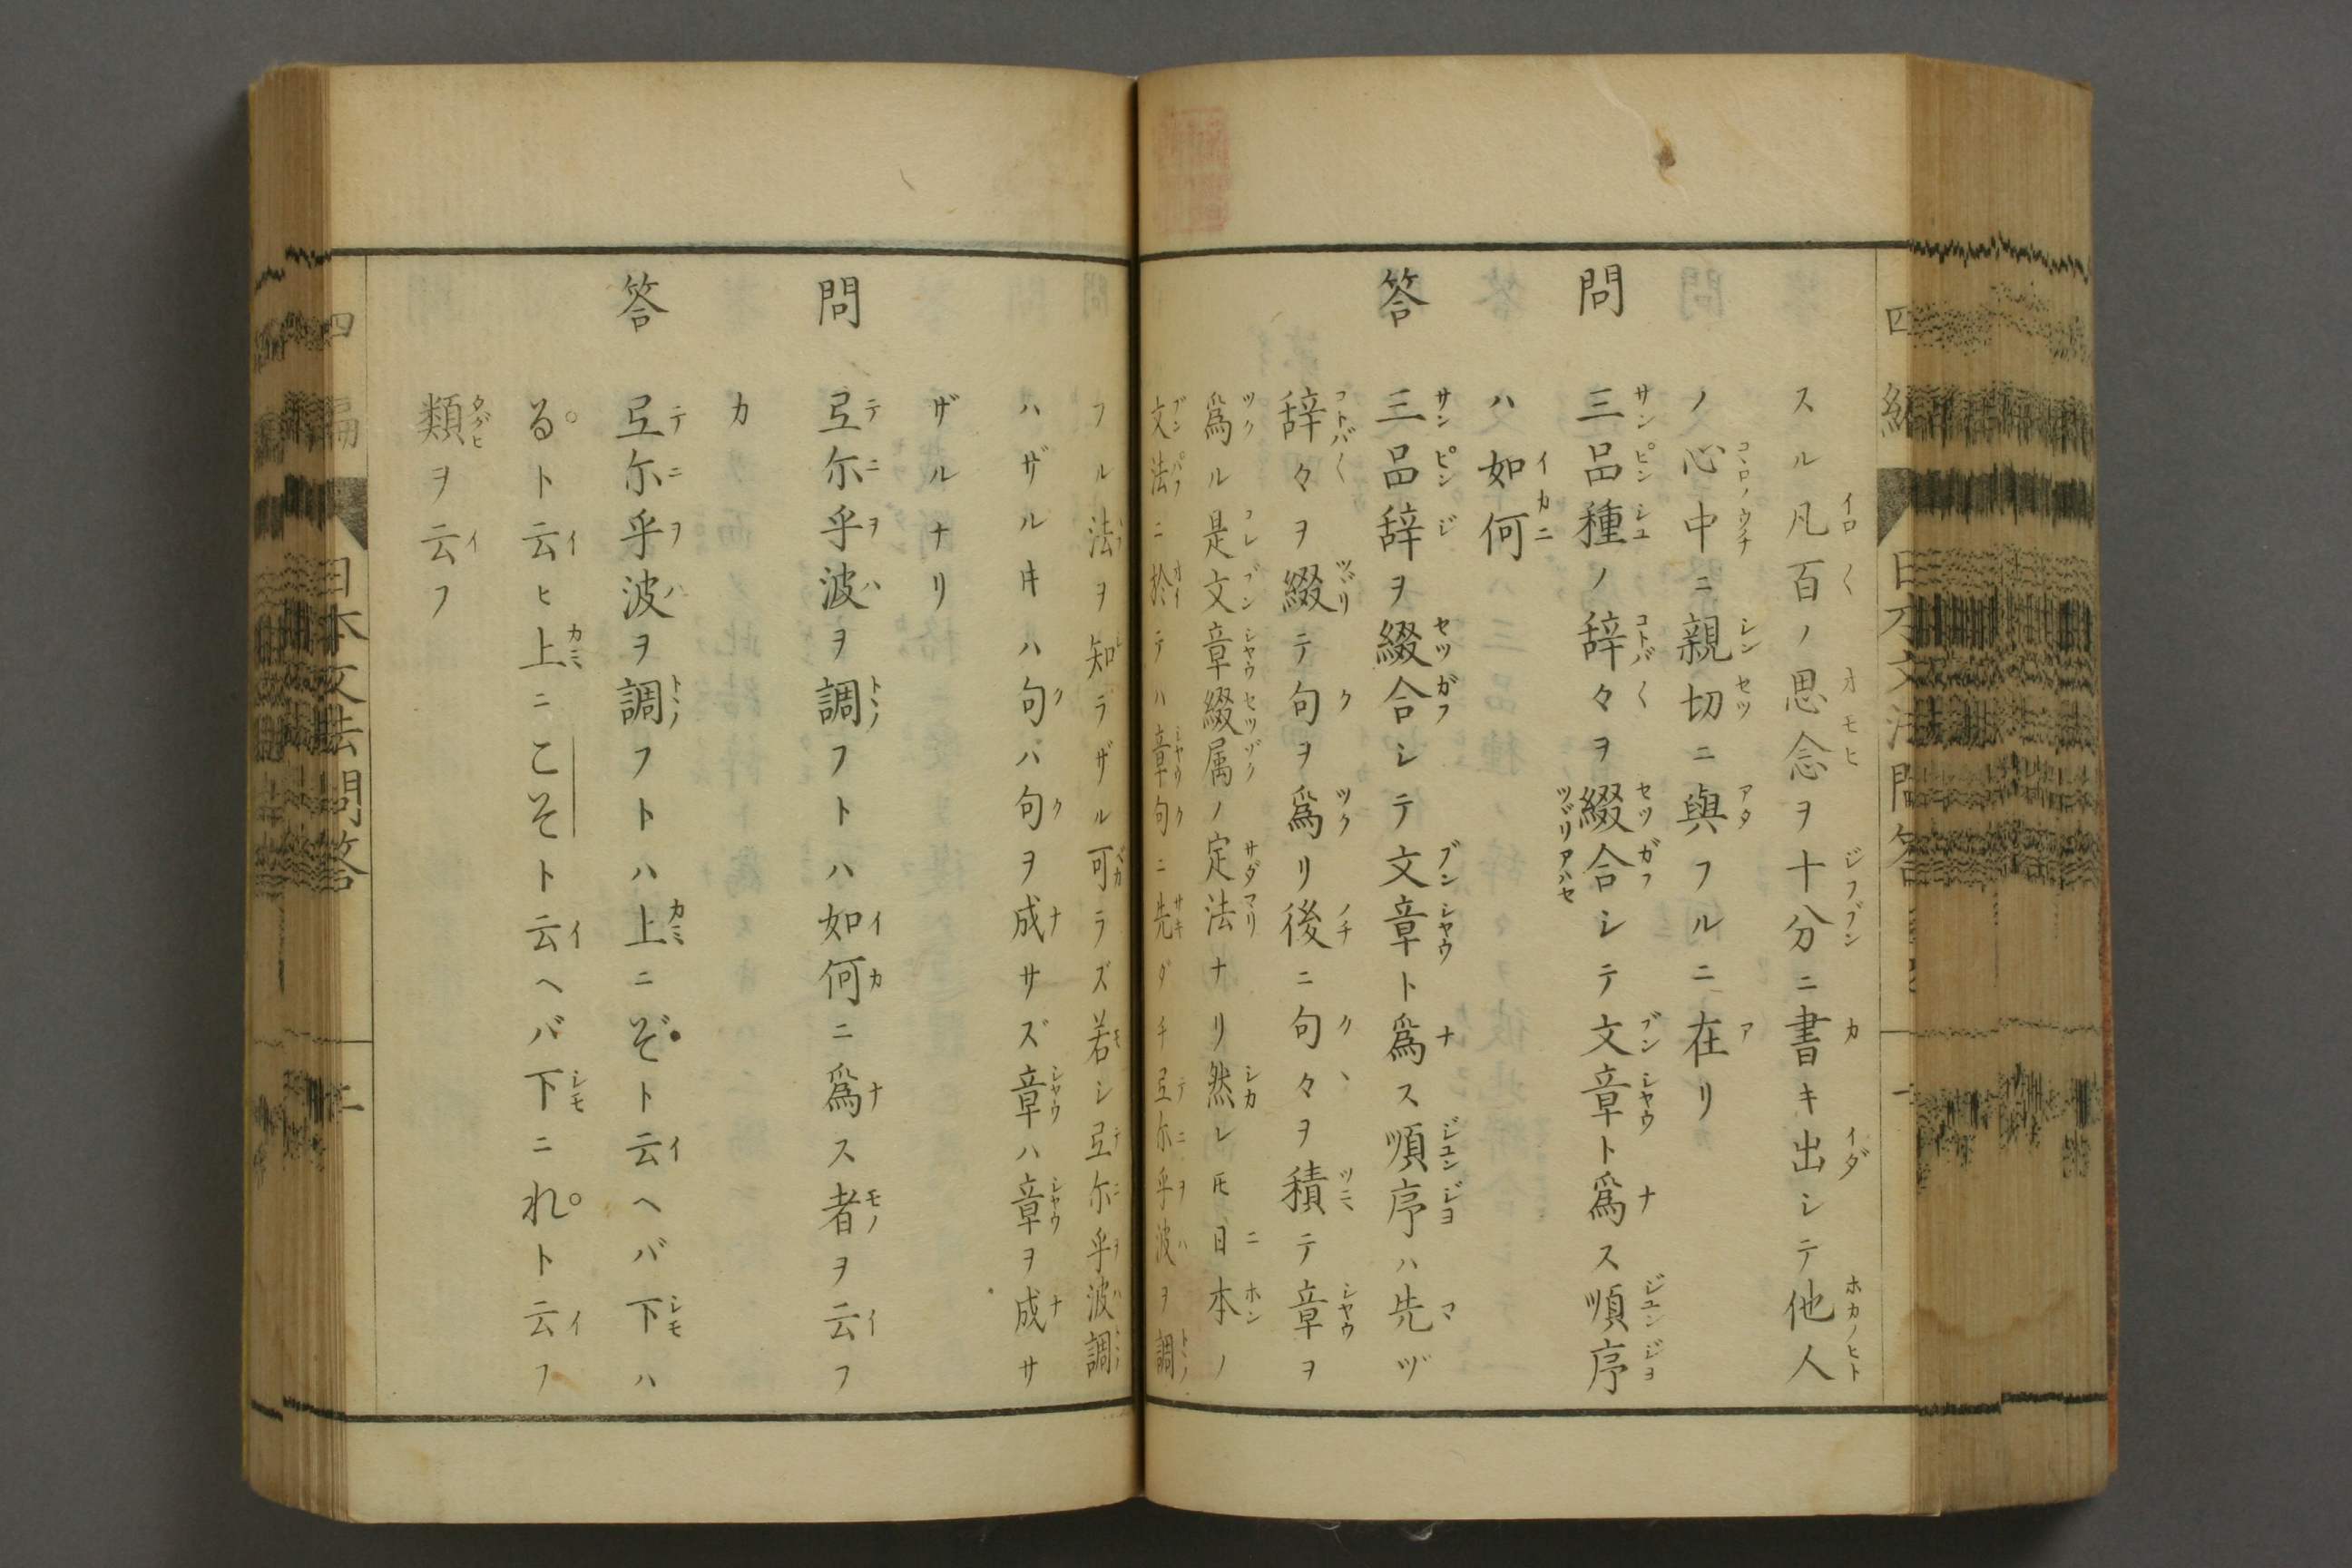 スル凡百ノ思念ヲ十分ニ書キ出シテ他人
ノ心中ニ親切ニ與フルニ在リ
問 三品種ノ辞々ヲ綴合シテ文章ト爲ス順序
ハ如何
答 三品辞ヲ綴合シテ文章ト爲ス順序ハ先ヅ
辞々ヲ綴テ句ヲ爲リ後ニ句々ヲ積テ章ヲ
爲ル是文章綴属ノ定法ナリ然レ𪜈日本ノ
文法ニ於テハ章句ニ先ダチ弖尓乎波ヲ調
フル法ヲ知ラザル可ラズ若シ弖尓乎波調
ハザル𪜈ハ句ハ句ヲ成サズ章ハ章ヲ成サ
ザルナリ
問 弖尓乎波ヲ調フトハ如何ニ爲ス者ヲ云フ
カ
答 弖尓乎波ヲ調フトハ上ニぞト云ヘバ下ハ
るト云ヒ上ニこそト云ヘバ下ニれト云フ
類ヲ云フ
四編 日本文法問答 二